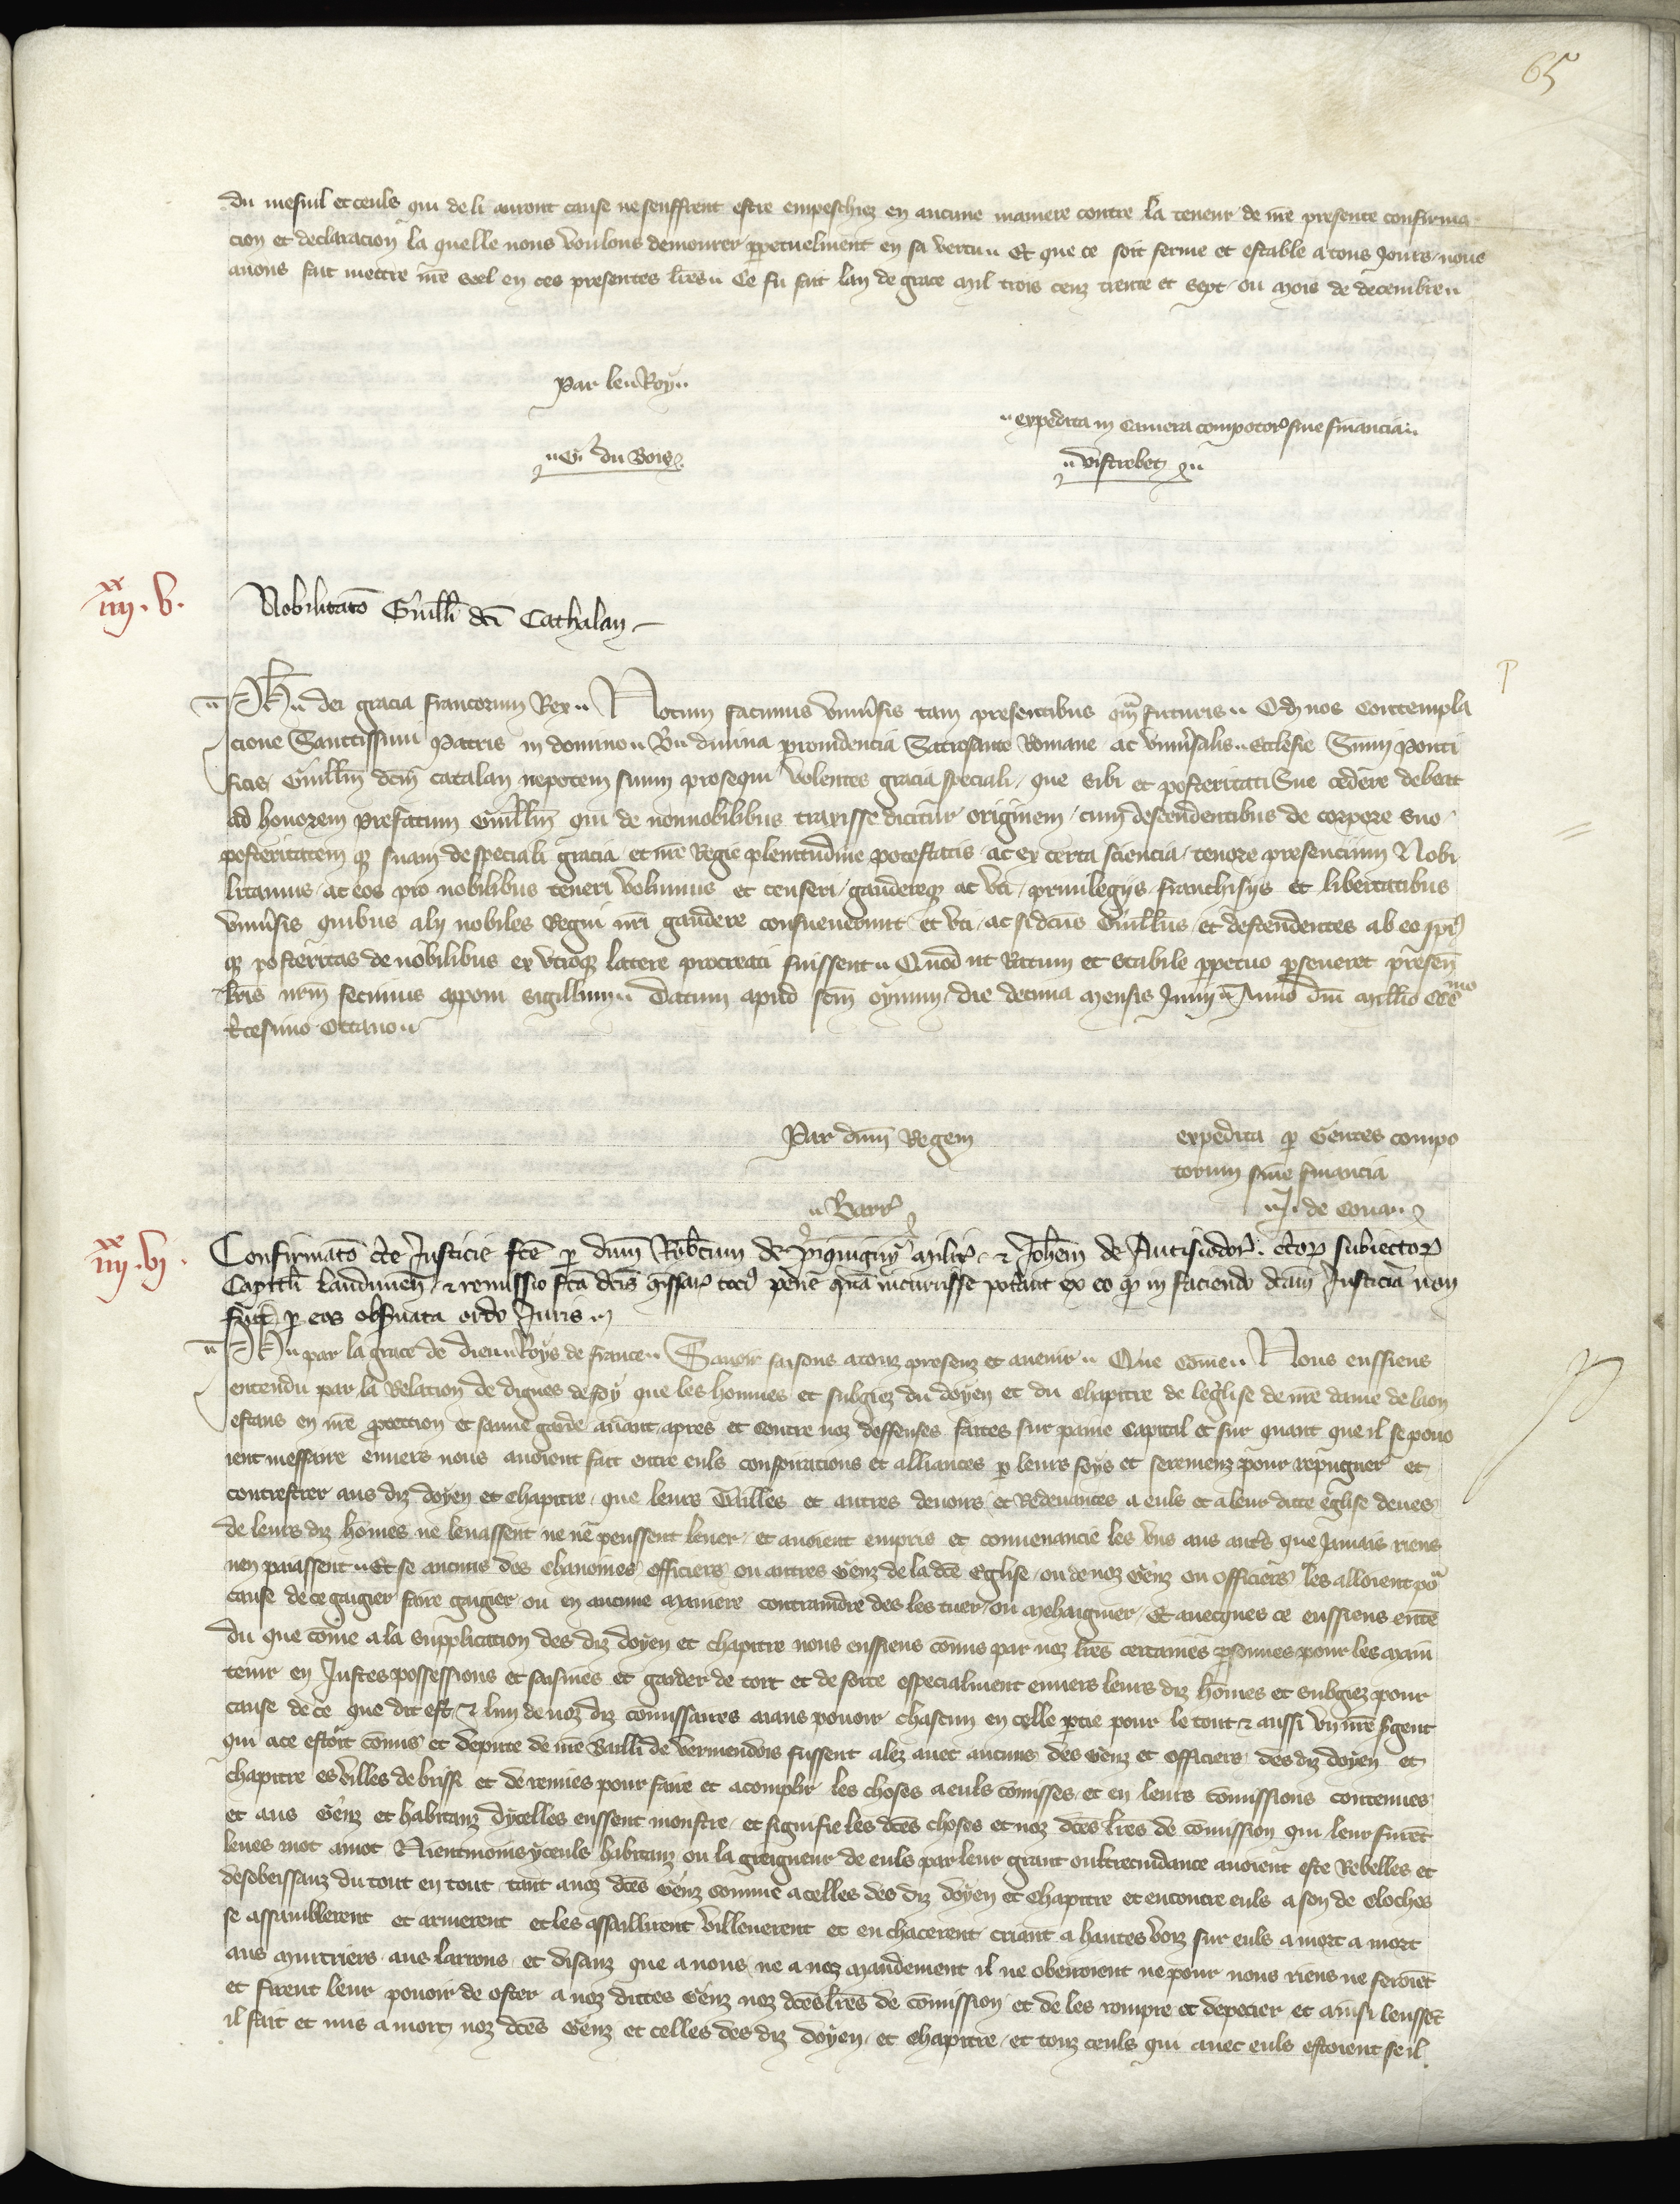 65
du mesnil et ceuls qui de li auront cause ne seuffrent estre empeschiez en aucune maniere contre la teneur de nre presente confirma
cion et declaracion la quelle nous voulons demourer perpetuelment en sa vertu Et que ce soit ferme et estable a tous jours nous
auons fait mettre nre seel en ces presentes lres Ce fu fait lan de grace mil trois cenz trente et sept ou mois de decembre
Par le Roy
expedita in camera compotor sine financia
G du Bois
Vistrebet
iiii xx . v .
Nobilitaco Guilli dci Cathalan
Ph dei gracia francorum Rex Notum facimus vniuersis tam presentibus qm futuris Qd nos contempla
cione Sanctissimi Patris in domino B diuina prouidencia Sacrosancte Romane ac vniuersalis Ecclesie Summi Ponti
ficis Guillm dcm catalan nepotem suum prosequi volentes gracia speciali que sibi et posteritati Sue cedere debeat
ad honorem prefatum Guillm qui de nonnobilibus traxisse dicitur originem cum descendentibus de corpore suo
posteritatem qz suam de speciali gracia et nre Regie plenitudine potestatis ac ex certa sciencia tenore presencium Nobi
litamus ac eos pro nobilibus teneri volumus et censeri gaudereqz ac vti priuilegijs franchisijs et libertatibus
vniuersis quibus alij nobiles Regni nri gaudere consueuerunt et vti ac si dcus Guillus et descendentes ab eo ipi
qz posteritas de nobilibus ex vtroqz latere procreati fuissent Quod ut Ratum et stabile ppetuo perseueret presen
lris nrm fecimus apponi sigillum Datum apud scm oynum die decima mensis Junij Anno dni millio CCCmo
Tricesimo octauo
Par dnm Regem
expedita p Gentes compo
torum sine financia
Barr
J de Cona
iiii xx . vj .
Confirmaco cte Justicie fce p dnm Robtum de Piquigny milit & Johem de Autisiodor ctor subiector
Capituli laudunen & remissio fca dcis comissar toci pene qua incurrisse potant ex eo qz in faciendo dcam Justicia non
fuit p eos obseruata ordo Juris
Ph par la grace de dieu Roys de france Sauoir faisons a touz presenz et auenir Que come Nous eussiens
entendu par la Relacion de dignes de foy que les hommes et subgiez du doyen et du chapitre de leglise de nre dame de laon
estans en nre proteccion et sauue garde auant apres et contre noz deffenses faites sur paine capital et sur quant que il se pouo
ient meffaire enuers nous auoient fait entre euls conspiracions et alliances p leurs foys et seremenz pour repugner et
contrester aus diz doyen et chapitre que leurs tailles et autres deuoirs et Redeuances a euls et a leur dicte eglise deues
de leurs diz homes ne leuassent ne ne peussent leuer et auoient empris et conuenancie les vns aus autres que jamais riens
nen paiassent Et se aucuns des chanoines officiers ou autres Genz de la dce Eglise ou de noz Genz ou officiers les alloient por
cause de ce gaigier faire gaigier ou en aucune maniere contraindre des les tuer ou mehaignier Et auecques ce eussiens enten
du que come a la supplicacion des diz doyen et chapitre nous eussiens comis par noz lres certaines psonnes pour les main
tenir en justes possessions et saisines et garder de tort et de force especialment enuers leurs diz homes et subgiez pour
cause de ce que dit est & lun de noz diz comissaires aians pouoir chascun en celle partie pour le tout & aussi vn nre sergent
qui a ce estoit comis et depute de nre Bailli de vermendois fussent alez auec aucuns des Genz et officiers des diz doyen et
chapitre es villes de brissi et de remies pour faire et acomplir les choses a euls comisses et en leurs comissions contenues
et aus Genz et habitanz dycelles eussent monstre et signifie les dces choses et noz dces lres de comission qui leur furent
leues mot a mot Nientmoins yceuls habitanz ou la greigneur de euls par leur grant oultrecuidance auoient este Rebelles et
desobeissanz du tout en tout tant a noz dces Genz comme a celles des diz doyen et chapitre et encontre euls a son de cloches
se assamblerent et armerent et les assaillirent villenerent et en chacerent criant a hautes voiz sur euls a mort a mort
aus murtriers aus larrons et disanz que a nous ne a noz mandement il ne obeiroient ne pour nous riens ne feroient
et firent leur pouoir de oster a noz dictes Genz noz dces lres de comission et de les rompre et depecier et ainsi leussent
il fait et mis a mort noz dces Genz et celles des diz doyen et chapitre et touz ceuls qui auec euls estoient se il